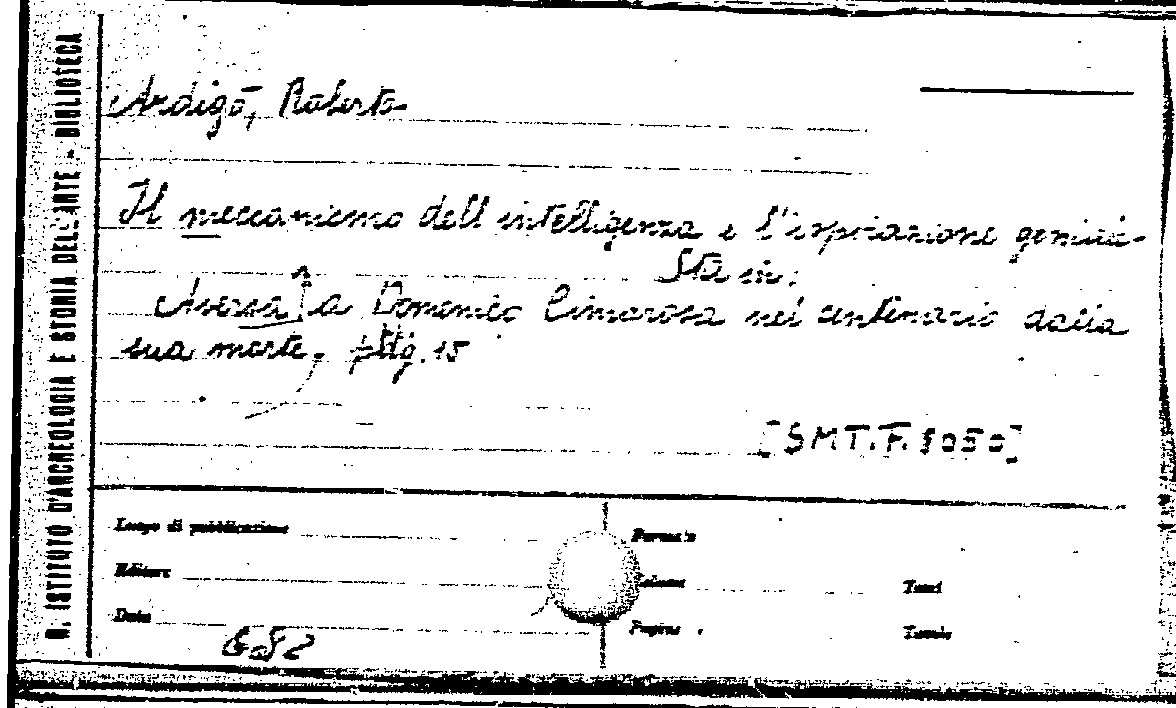 R. ISTITUTO D'ARCHEOLOGIA E STORIA DELL'ARTE - BIBLIOTECA
Ardigò, Roberto
Il meccanismo dell'intelligenza e l'ispirazione geniale
Sta in:
Aversa a Domenico Cimarosa nel centenario dalla
sua morte, pag. 15
[SMT.F. 5050]
Luogo di pubblicazione
Editore
Data
Formato
Volume
Pagine
Tomi
Tavole